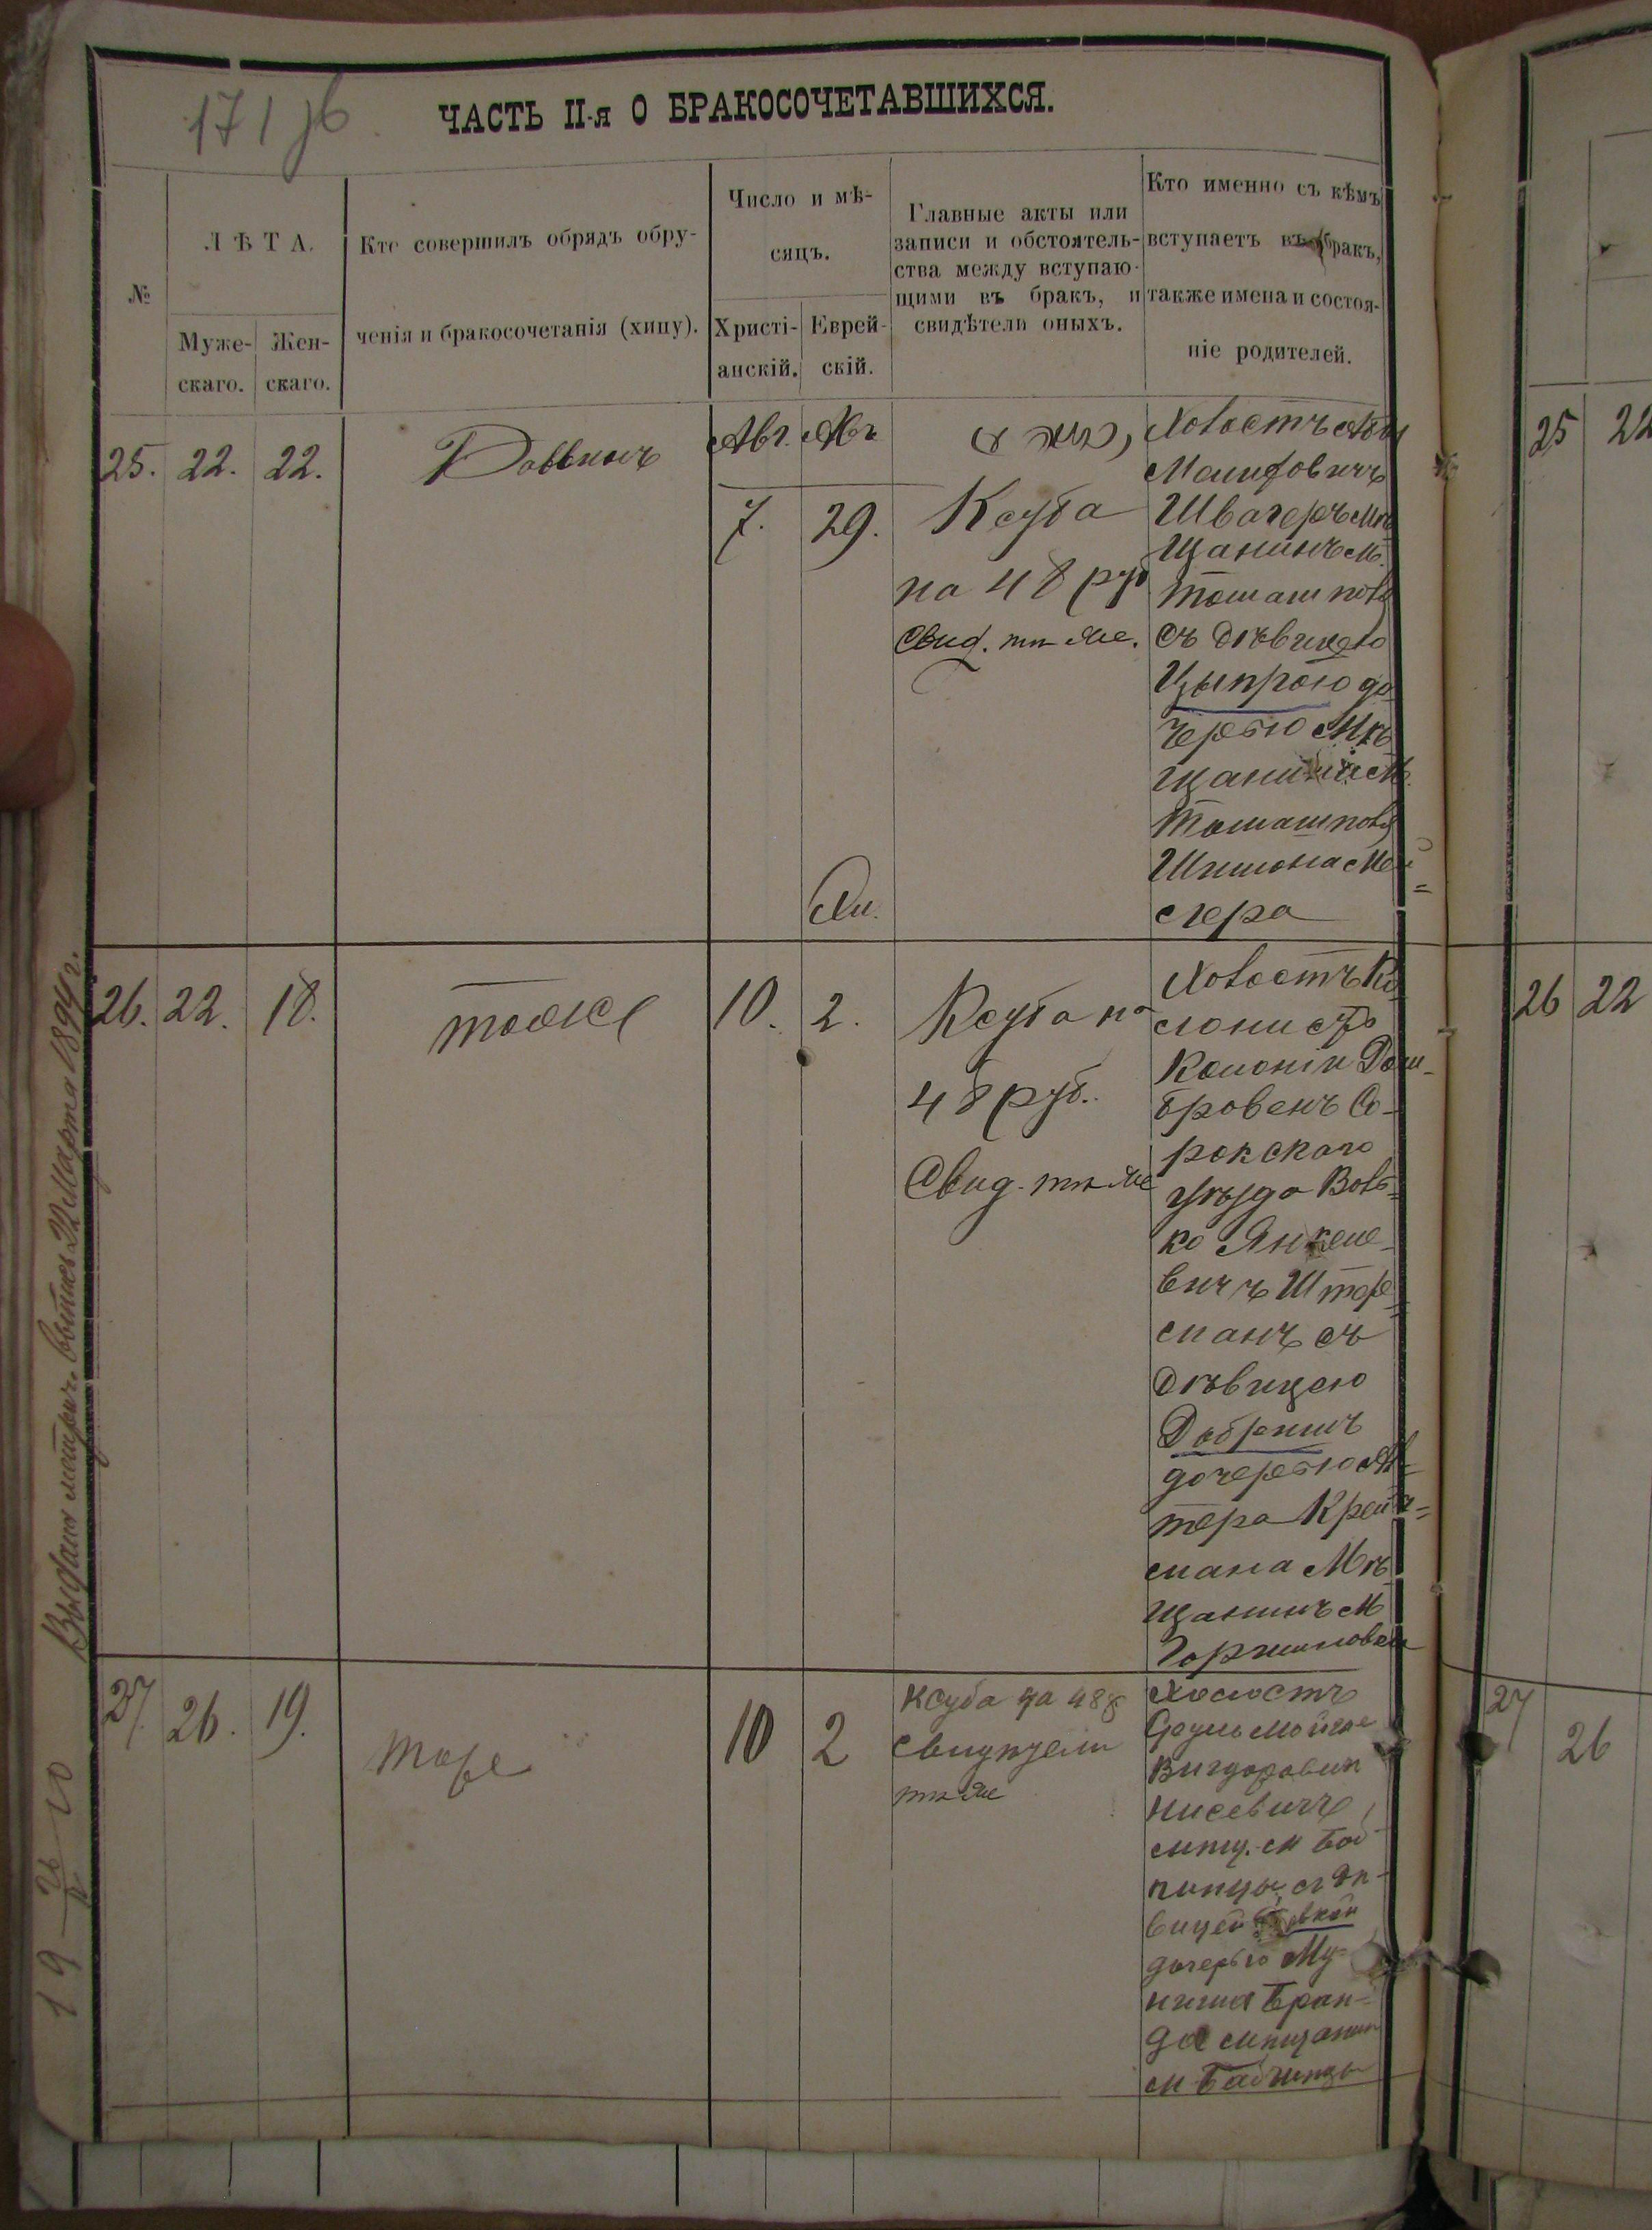 171 об
ЧАСТЬ II-я О БРАКОСОЧЕТАВШИХСЯ.
№
ЛѢТА.
Муже-
скаго.
Жен-
скаго.
Кто совершилъ обрядъ обру-
ченія и бракосочетанія (хипу).
Число и мѣ-
сяцъ.
Христі-
анскій.
Еврей-
скій.
Главные акты или
записи и обстоятель-
ства между вступаю-
щими въ бракъ, и
свидѣтели оныхъ.
Кто именно съ кѣмъ
вступаетъ въ бракъ,
также имена и состоя-
ніе родителей.
25. 22. 22.
Раввинъ
Авг. Авъ
7. 29.
Ксуба
на 48 руб
Свид. тѣ же.
Холостъ
Швагеръ Мѣ
щанинъ м.
Томашполя
съ дѣвицею
Ципрою до
черью Мѣ
щанина м.
Томашполя
Шимона Мей
слера
Эл.
26. 22. 18.
тоже
10. 2.
Ксуба на
48 руб.
Свид. тѣ же
Холостъ Ко
лонистъ
Колоніи Дом-
бровенъ Со-
рокскаго
уѣзда Воль-
ко Янкеле-
вичъ Штер-
манъ съ
дѣвицею
Добришъ
дочерью Ал-
тера Крей-
мана Мѣ
щанинъ м
27. 26. 19.
тоже
10 2
Ксуба на 48 р
свидѣтели
тѣ же
Холостъ
Сруль Мойше
Вигдоровичъ
мѣщ. м Баб
чинцы съ дѣ-
вицей
дочерью Му-
ниша Бран-
да мѣщанин
м Бабчинцы
Выдана метрич. выпись 22 Марта 1894 г.
25 22
26 22
27 26